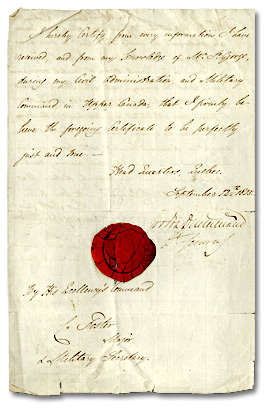 I hereby Certify from every information I have
received, and from my knowledge of Mr. St. George,
during my Civil Administration and Military
Command in Upper Canada, that I firmly be-
lieve the foregoing Certificate to be perfectly
just and true.—
Head Quarters, Quebec.
September 12th
Drummond
By His Excellency's Command
Foster
Major
& Military Secretary.